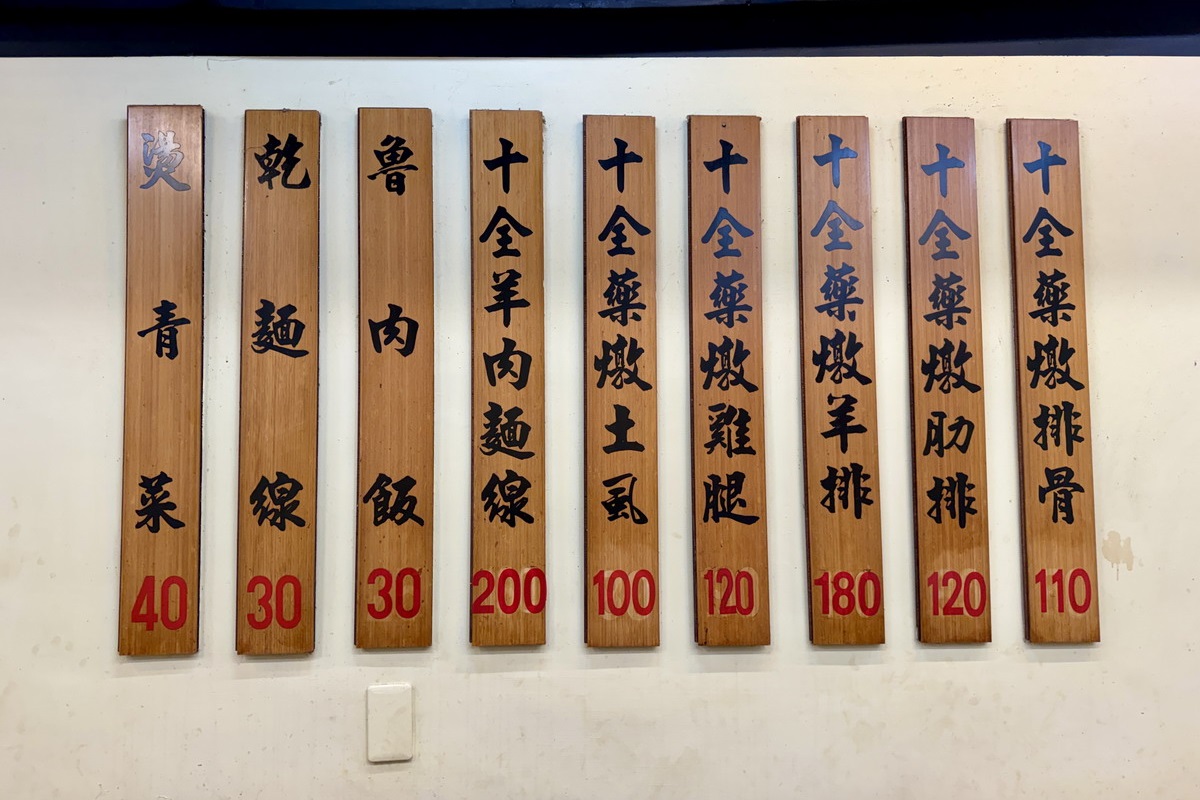 十全藥燉排骨 110
十全藥燉肋排 120
十全藥燉羊排 180
十全藥燉雞腿 120
十全藥燉土虱 100
十全羊肉麵線 200
魯肉飯 30
乾麵線 30
燙青菜 40